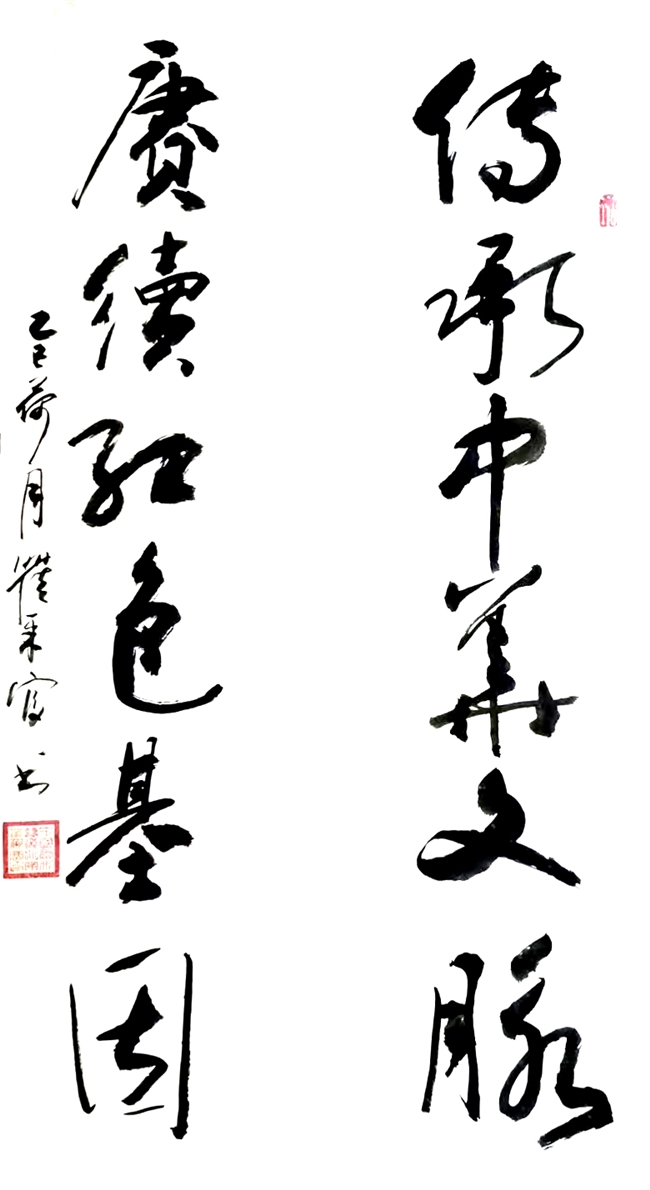 傳承中華文脉
賡續紅色基因
乙巳荷月
書